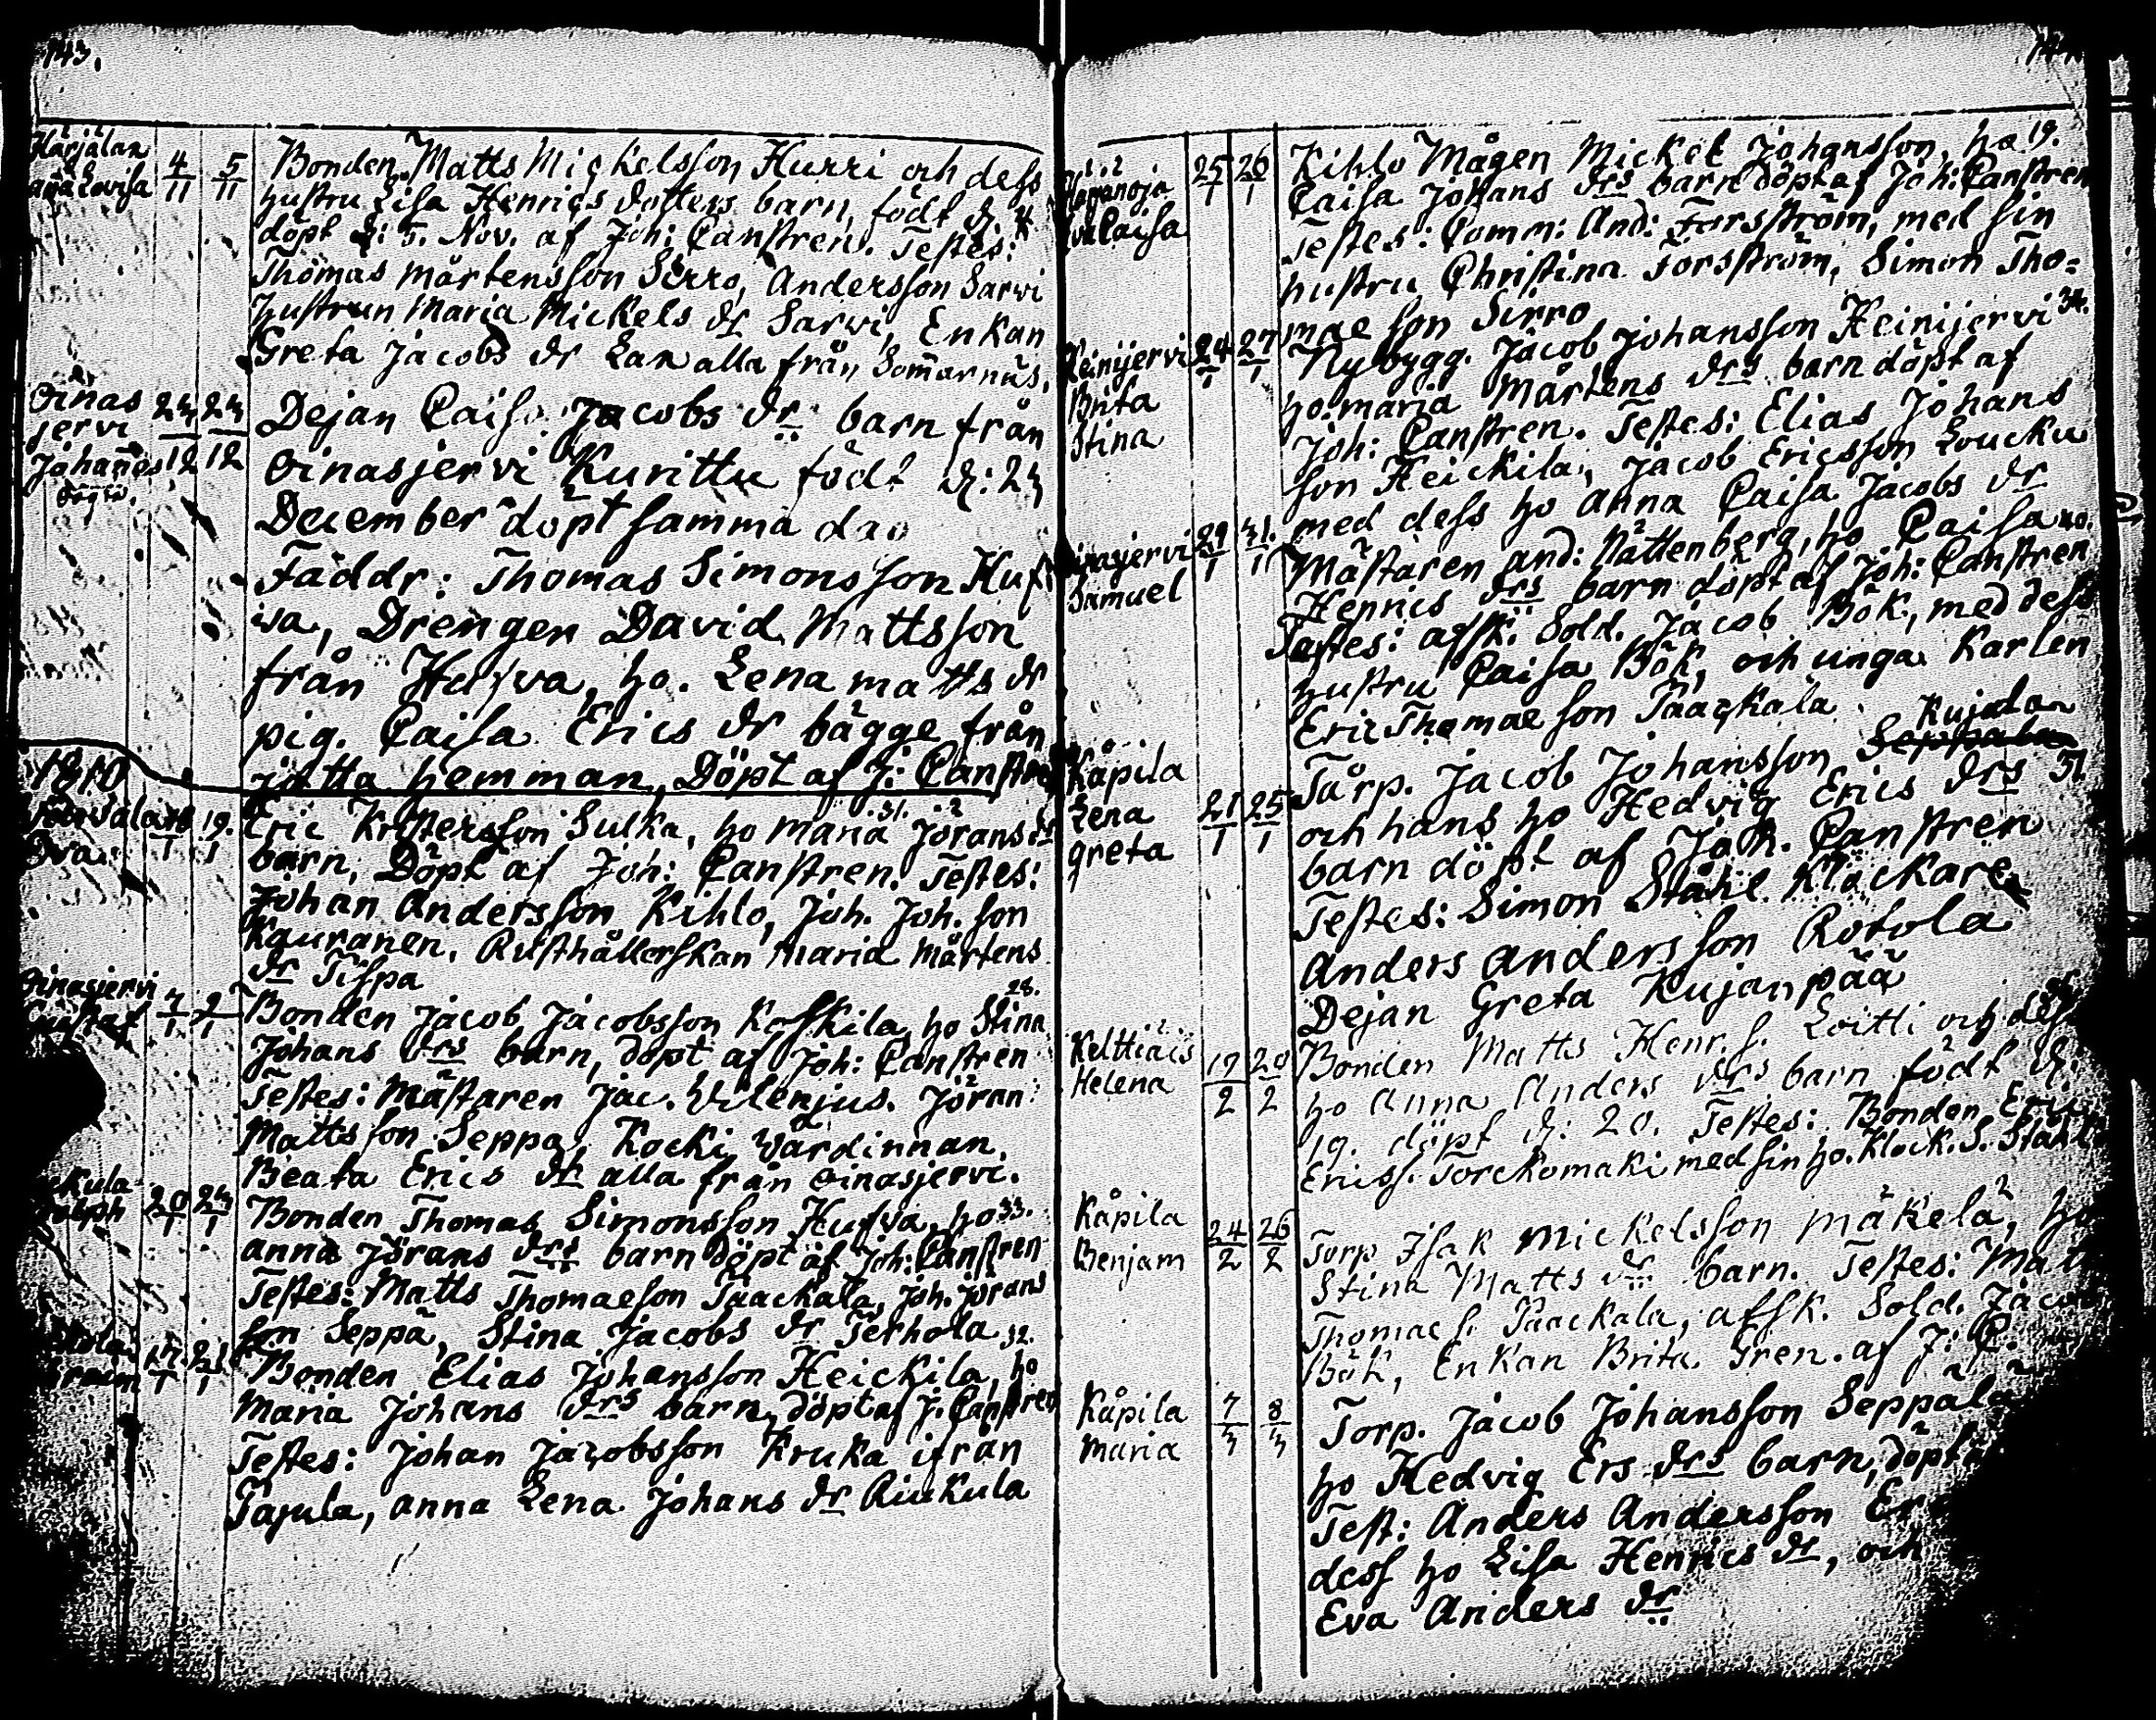 143.
Härjälan
Lovisa
4/11 5/11
Bonden Matts Mickelsson Hurri och dess
hustru Lisa Henrics dotters barn, födt d: 4.
döpt d: 5. Nov. af Joh: Canstren. Testes:
Thomas Mårtensson Sirro, Andersson Sarvi
hustrun Maria Mickels dr Sarvi, Enkan
Greta Jacobs dr Lan alla från Somarnäs.
Oinas
jervi
Johannes
23/12 23/12
Dejan Caisa Jacobs dr barn från
Oinasjervi Kurittu födt d: 23
December döpt samma dag
Fäddr: Thomas Simonsson Huf
wa, Drengen David Mattsson
från Hufwa, ho. Lena Matts dr
pig. Caisa Erics dr bägge från
jätta hemman, Döpt af J: Canstren
1810
Eva
18/1 19/1
Eric Kristersson Sulka, ho Maria Jörans dr 31.
barn, Döpt af Joh: Canstren. Testes:
Johan Andersson Kihlo, Joh. Joh. son
Kauranen, Rusthållerskan Maria Mårtens
dr Tispa
Oinasjervi
Gustaf
7/1 9/1
28.
Bonden Jacob Jacobsson Koskila, ho Stina
Johans drs barn, döpt af Joh: Canstren
Testes: Mästaren Jac. Wilenius. Jöran
Mattsson Seppä, Kocki Wärdinnan.
Beata Erics dr alla från Oinasjervi.
kula
20/1 23/1
Bonden Thomas Simonsson Hufwa, ho 33.
Anna Jörans drs barn döpt af Joh: Canstren
Testes: Matts Thomaeson Paackala, Joh. Jörans
son Seppä, Stina Jacobs dr Terhola 32.
17/1 21/1
Bonden Elias Johansson Heickila, ho
Maria Johans drs barn, döpt af J. Canstren
Testes: Johan Jacobsson Kruka ifrån
Pajula, Anna Lena Johans dr Riukula
Hapanoja
Eva Caisa
25/1 26/1
Kihlo Mågen Mickel Johansson, ho 19.
Caisa Johans drs barn döpt af Joh: Canstren
Testes: Comm: And: Forsström, med sin
hustru Christina Forsström, Simon Tho=
mae son Sirro
Heinijervi
Brita
Stina
24/1 27/1
Nybygg. Jacob Johansson Heinijervi 34.
ho. Maria Mårtens drs barn döpt af
Joh: Canstren. Testes: Elias Johans
son Heickila, Jacob Ericsson Loucku
med dess ho Anna Caisa Jacobs dr
Oinasjervi
Samuel
29/1 31/1
Mästaren And: Nättenberg, ho Caisa 40.
Henrics drs barn döpt af Joh: Canstren
Testes: afsk: Sold. Jacob Bök, med dess
hustru Caisa Bök, och unga Karlen
Eric Thomae son Paackala
Kåpila
Lena
Greta
21/1 25/1
Kujala
Torp. Jacob Johansson Seppala
och hans ho Hedvig Erics drs 31.
barn döpt af Joh. Canstren
Testes: Simon Ståhl Klockare
Anders Andersson Rotola
Dejan Greta Kujanpää
Kelttiäis
Helena
19/2 20/2
Bonden Matts Henr. s. Loitti och dess
ho Anna Anders drs barn födt d:
19. döpt d: 20. Testes: Bonden Eric
Ericss. Torckomaki med sin ho. Klock. S. Ståhl
Kåpila
Benjam
24/2 26/2
Torp Isak Mickelsson Mäkelä, ho
Stina Matts dr barn. Testes: Matts
Thomae s. Paackala, afsk. Sold. Jacob
Bök, Enkan Brita Gren. af J: C.
Kåpila
Maria
7/3 8/3
Torp. Jacob Johansson Seppälä
ho Hedvig Ers drs barn, döpt
Test: Anders Andersson
dess ho Lisa Henrics dr, och
Eva Anders dr